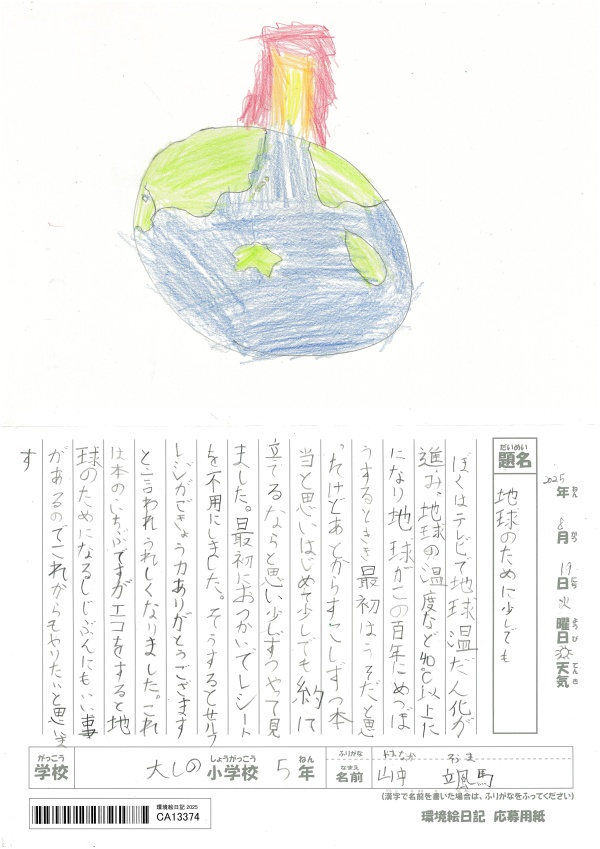 2025年 8月 19日 火曜日 天気
ねん がつ にち ようび てんき
だいめい
題名
地球のために少しでも
ぼくはテレビで地球温だん化が
進み、地球の温度など40℃以上に
になり地球がこの百年にめつぼ
うするときき最初はうそだと思
ったけどあとからすこしずつ本
当と思いはじめて少しでも約に
立てるならと思い少しずつやって見
ました。最初におつかいでレシート
を不用にしました。そうするとセルフ
レジができょう力ありがとうございます
と言われうれしくなりました。これ
は本のいちぶですがエコをすると地
球のためになるしじぶんにもいい事
があるのでこれからもやりたいと思いま
す
がっこう
学校
大しの 小学校 5年
しょうがっこう ねん
ふりがな
やまなか そうま
なまえ
名前
山中 颯馬
(漢字で名前を書いた場合は、ふりがなをふってください)
環境絵日記 2025
CA13374
環境絵日記 応募用紙